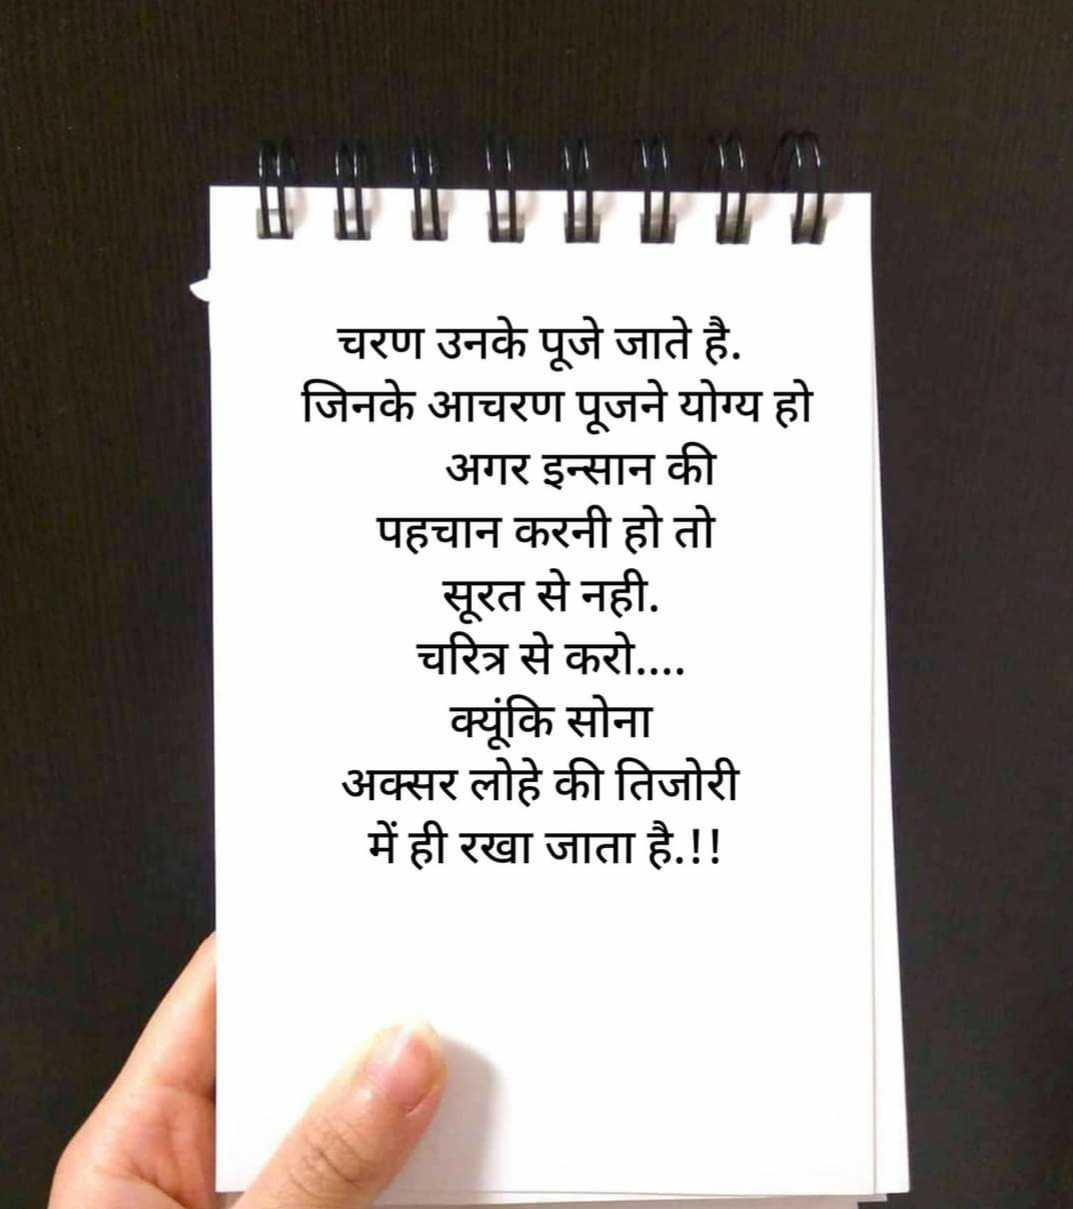 चरण उनके पूजे जाते है.
जिनके आचरण पूजने योग्य हो
अगर इन्सान की
पहचान करनी हो तो
सूरत से नही.
चरित्र से करो....
क्यूंकि सोना
अक्सर लोहे की तिजोरी
में ही रखा जाता है.!!